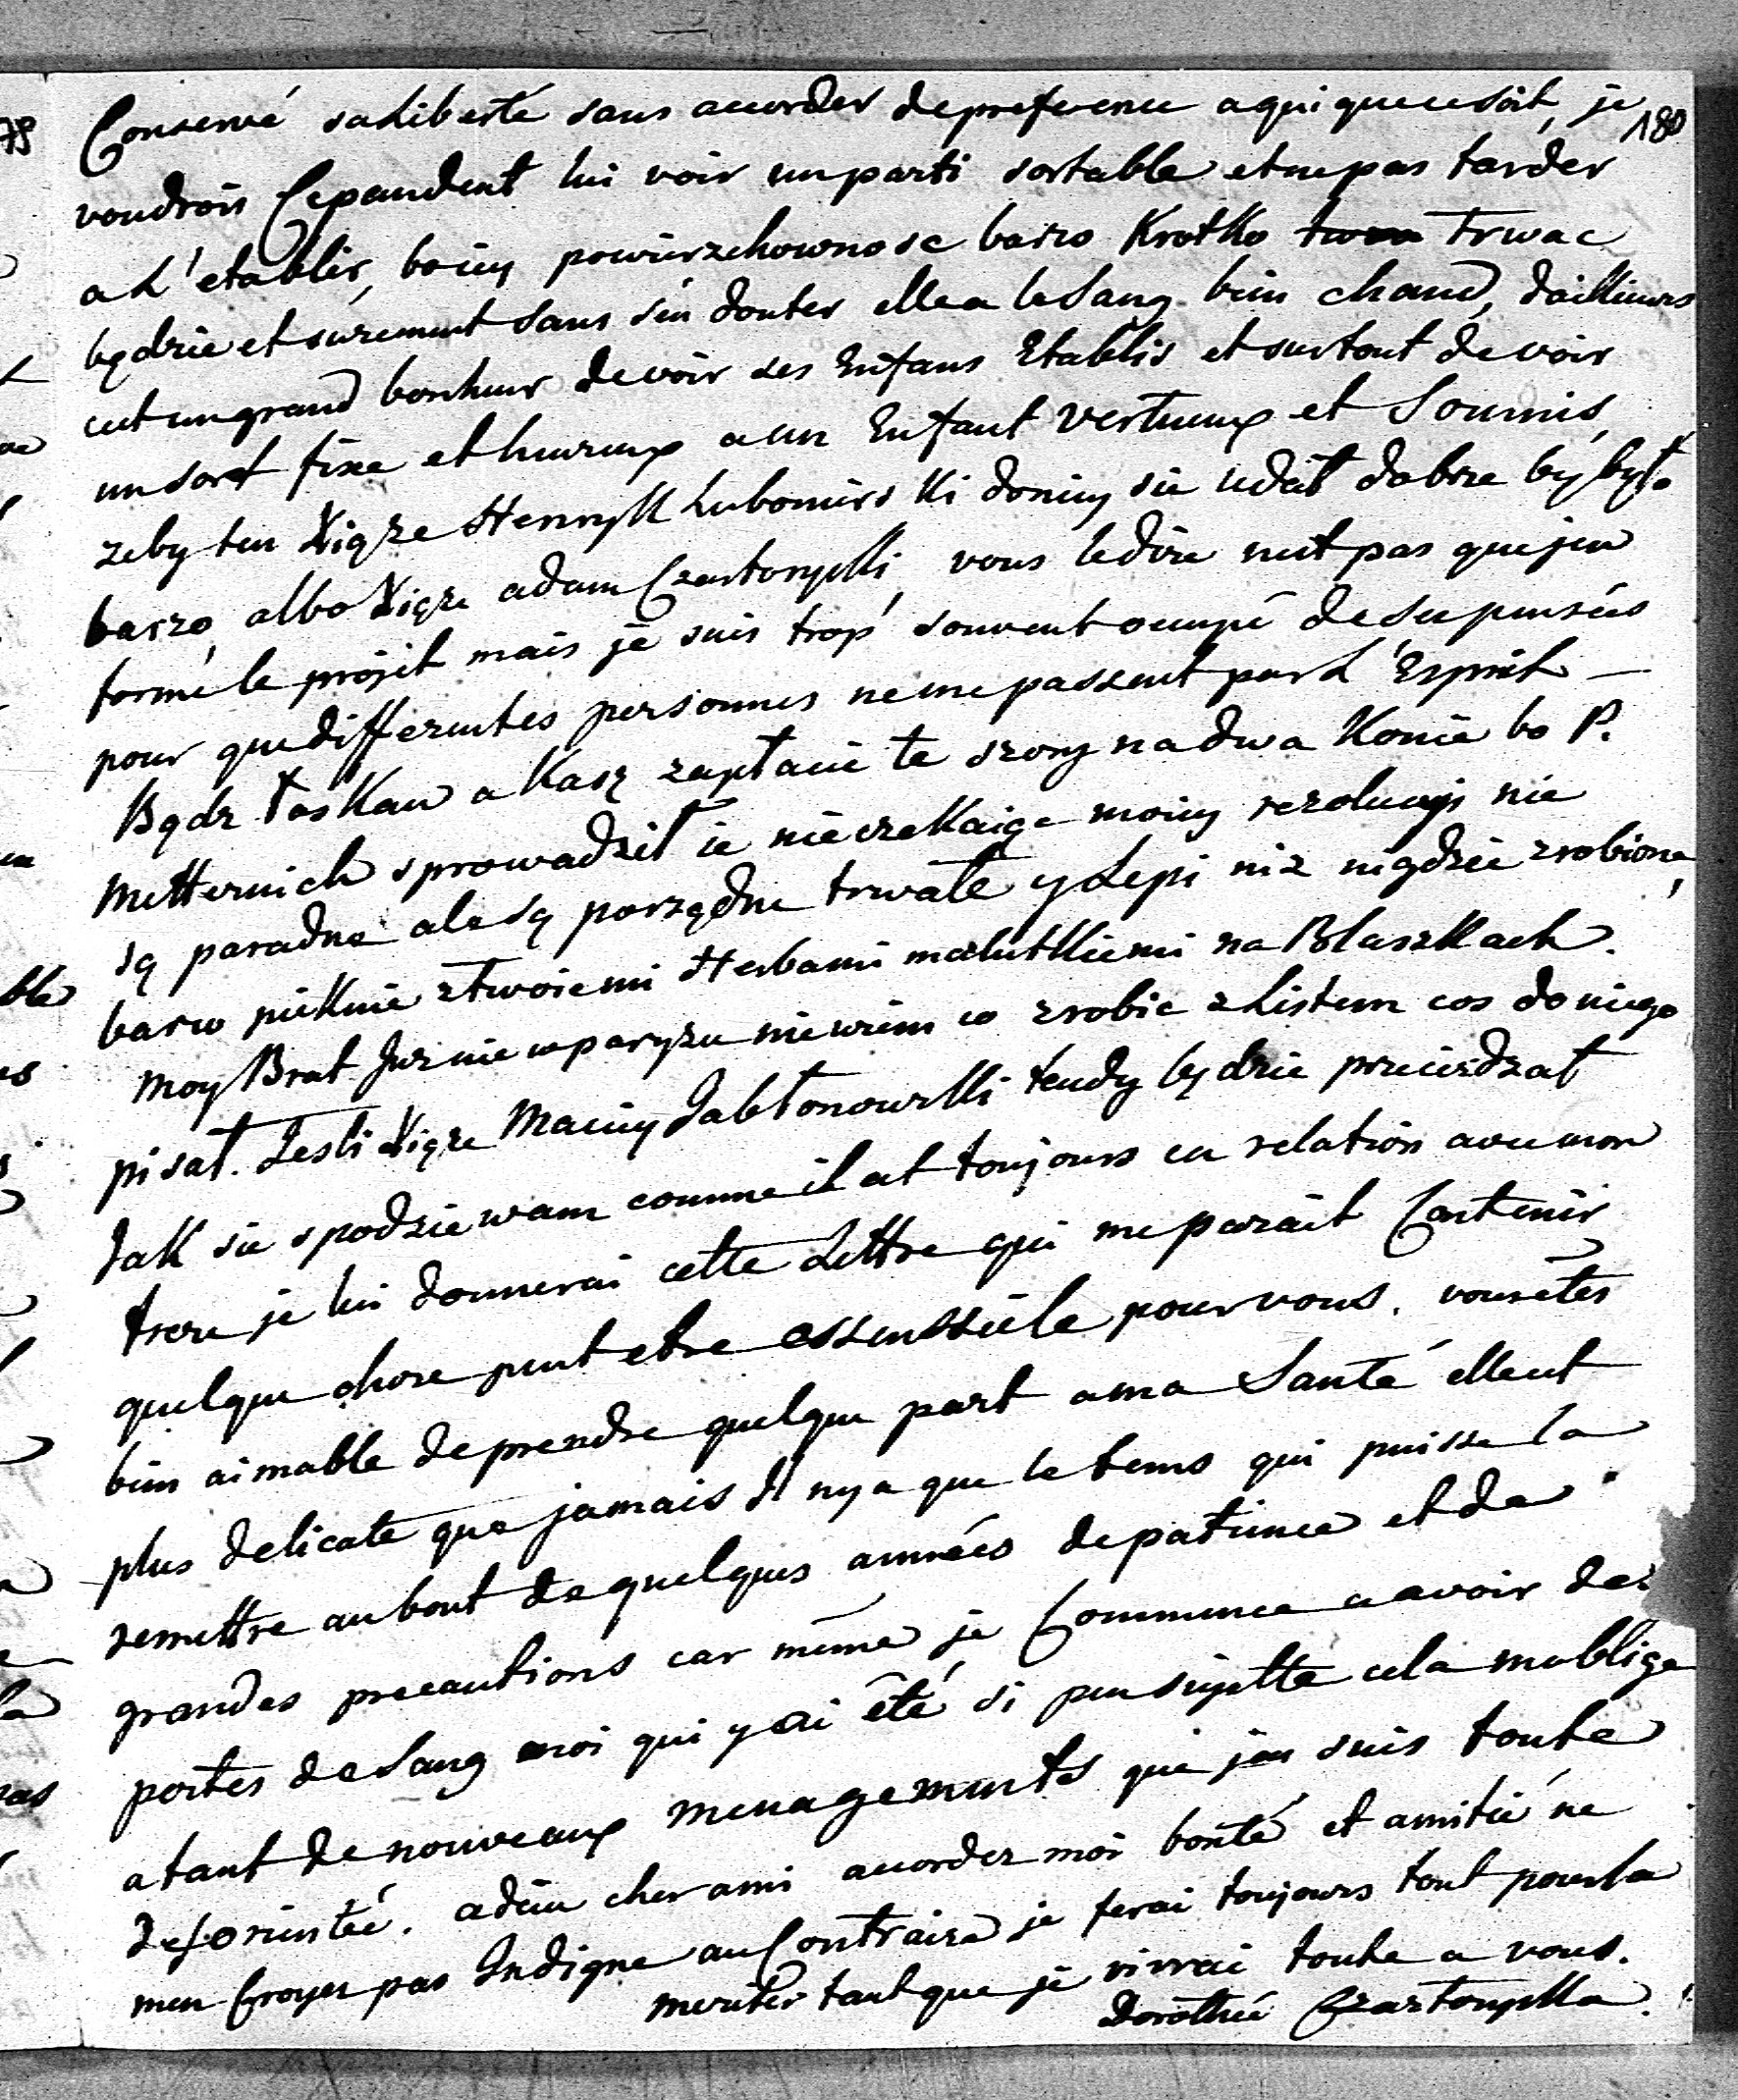 180
Conservé sa Liberté sans accorder de preference a qui que ce soit, je
voudrois Cepandent lui voir un parti sortable et ne pas tarder
a L'etablir, bo iey powierzchownosc barzo Krotko trwac
będzie et surement sans s'en douter elle a le Sang bien chaud, d'ailleurs
cest un grand bonheur de voir ses Enfans Etablis et surtout de voir
un sort fixe et heureux a un Enfant vertueux et Soumis,
zeby ten Xiąze Henryk Lubomirski do niey sie udał dobrze by było
barzo, albo Xiąze adam Czartoryski, vous le dire nest pas que jen
formé le projet mais je suis trop souvent occupé de ses pensées
pour que differentes personnes ne me passent par L'Esprit —
Bądz łaskaw a Kasz zapłacic te szory na dwa Konie bo P.
Metternich sprowadził ie nieczekaiąc moiey rezolucyi nie
są paradne ale są porządne trwałe y Lepi niz nigdzie zrobione,
barzo pieknie z twoiemi Herbami malutkiemi na Blaszkach.
Moy Brat Juz nie w paryzu niewiem co zrobic z Listem cos do niego
pisał. Jesli Xiąze Maciey Jabłonowski tendy będzie przeiezdzał
Jak sie spodziewam comme il at toujours eu relation avec mon
frere je lui donnerai cette Lettre qui me parait Contenir
quelque chose peut etre essenssiele pour vous. vous êtes
bien aimable de prendre quelque part a ma Santé elle est
plus delicate que jamais Il ny a que le tems qui puisse la
remettre au bout de quelques années de patience et de
grandes precautions car même je Commence a avoir des
pertes de Sang moi qui y ai été si peu sujette cela m'oblige
a tant de nouveaux menagements que j'en suis toute
desorientée. adieu cher ami accordez moi bonté et amitié ne
men Croyez pas Indigne au Contraire je ferai toujours tout pour la
meriter tant que je vivrai toute a vous.
Dorothée Czartoryska.